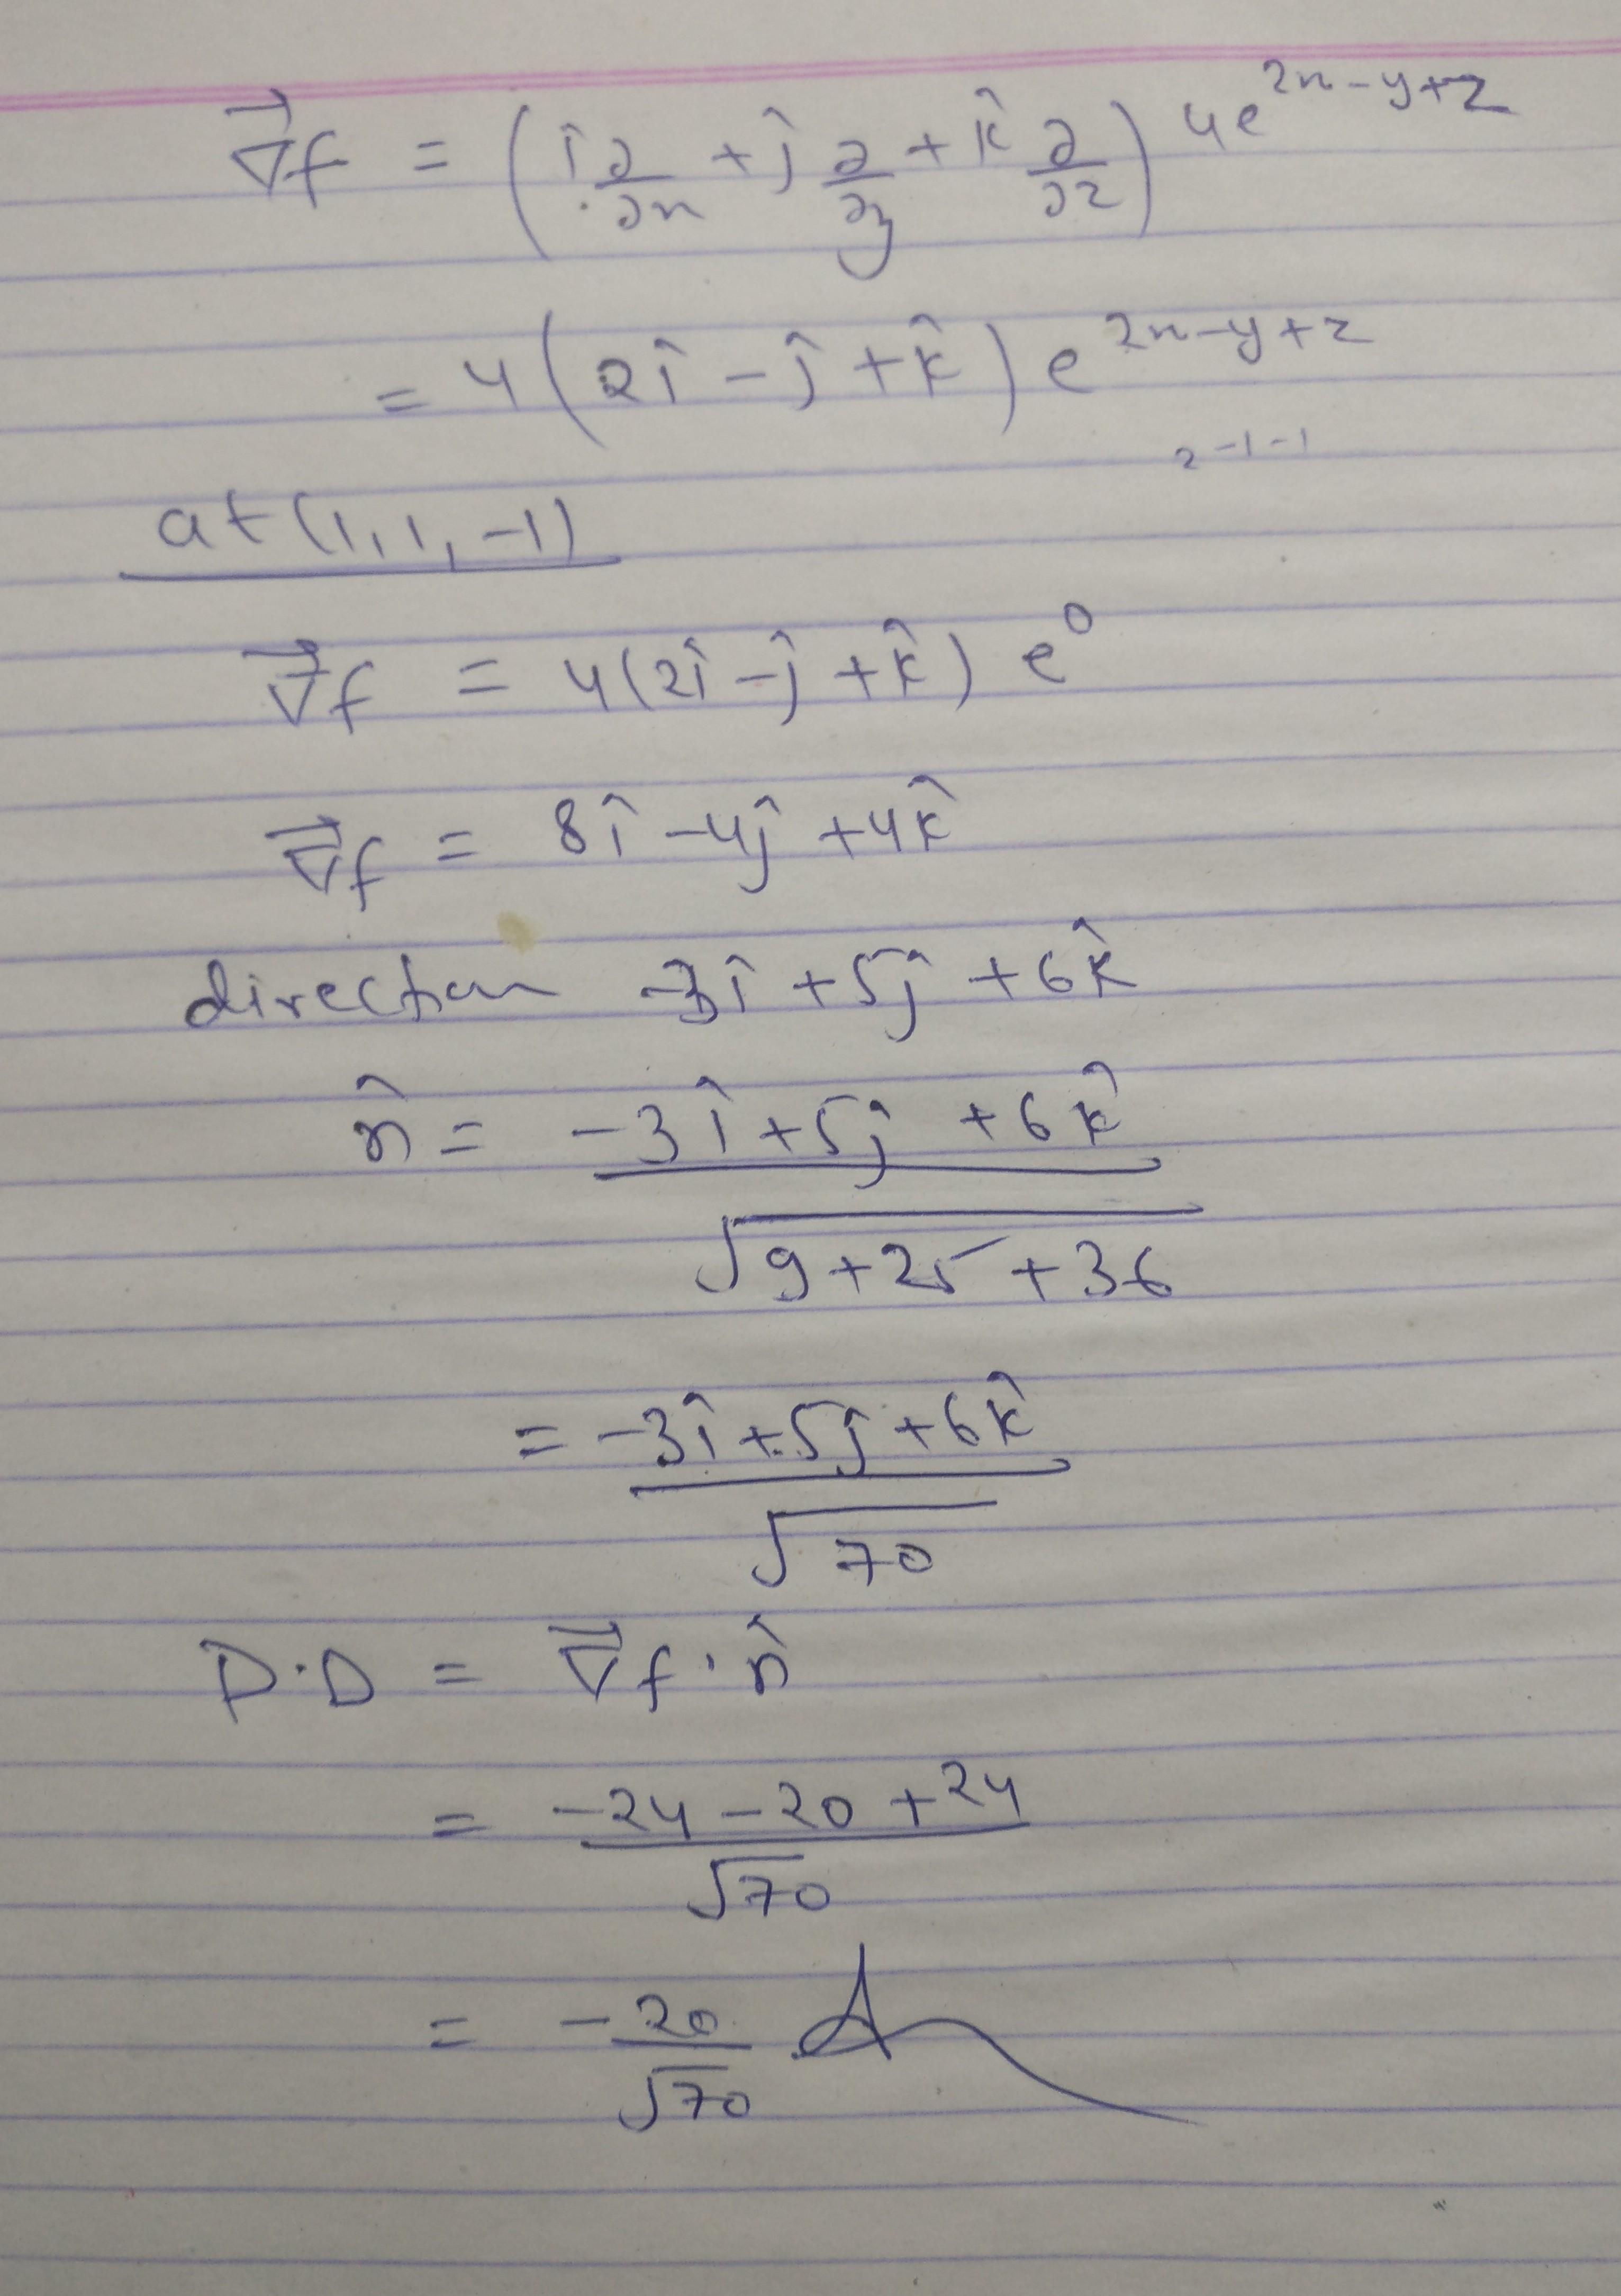 ∇⃗f = (î ∂/∂x + ĵ ∂/∂y + k̂ ∂/∂z) 4e^(2x-y+z)
= 4(2î - ĵ + k̂) e^(2x-y+z)
2-1-1
at (1,1,-1)
∇⃗f = 4(2î - ĵ + k̂) e^0
∇⃗f = 8î - 4ĵ + 4k̂
direction -3î + 5ĵ + 6k̂
n̂ = (-3î + 5ĵ + 6k̂)/√(9+25+36)
= (-3î + 5ĵ + 6k̂)/√70
D.D = ∇⃗f · n̂
= (-24 - 20 + 24)/√70
= -20/√70